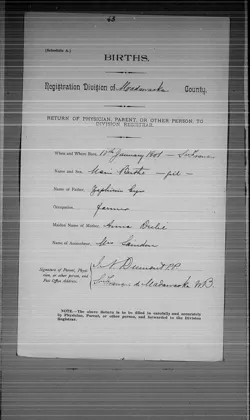 63
(Schedule A.)
BIRTHS.
Registration Division of Madawaska County.
RETURN OF PHYSICIAN, PARENT, OR OTHER PERSON, TO
DIVISION REGISTRAR.
When and Where Born, 11th January 1901 - St Francis
Name and Sex, Marie Berthe - girl -
Name of Father, Zephirin Cyr
Occupation, farmer
Maiden Name of Mother, Anna
Name of Accoucheur, Mrs
Signature of Parent, Physician, or other person, and Post Office Address.
St Francis de Madawaska N.B.
NOTE.—The above Return is to be filled in carefully and accurately
by Physician, Parent, or other person, and forwarded to the Division
Registrar.